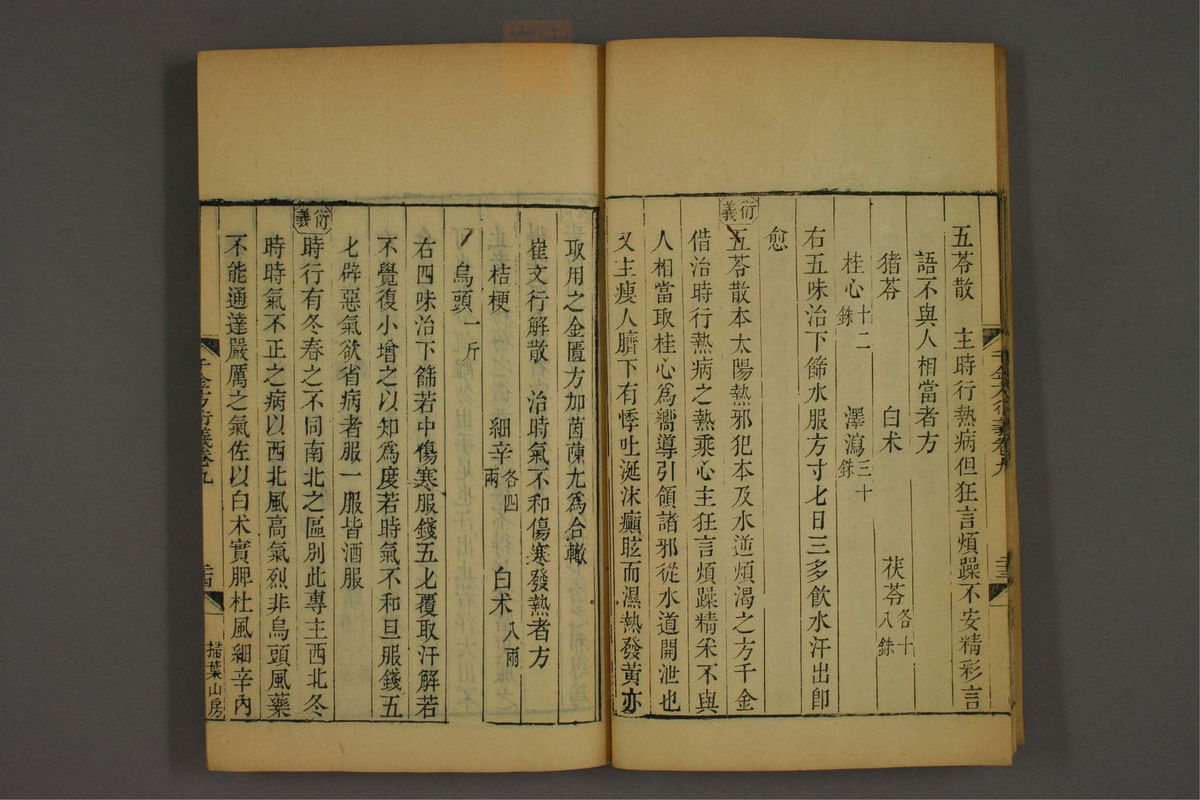 五苓散　主時行熱病但狂言煩躁不安精彩言
語不與人相當者方
猪苓　白朮　茯苓各十八銖
桂心十二銖　澤瀉三十銖
右五味治下篩水服方寸匕日三多飲水汗出卽
愈
衍義
五苓散本太陽熱邪犯本及水逆煩渴之方千金
借治時行熱病之熱乘心主狂言煩躁精采不與
人相當取桂心爲嚮導引領諸邪從水道開泄也
又主瘦人臍下有悸吐涎沫癲眩而濕熱發黃亦
千金方衍義卷九
三三
取用之金匱方加茵蔯尤爲合轍
崔文行解散　治時氣不和傷寒發熱者方
桔梗　細辛各四兩　白朮八兩
烏頭一斤
右四味治下篩若中傷寒服錢五匕覆取汗解若
不覺復小增之以知爲度若時氣不和旦服錢五
匕辟惡氣欲省病者服一服皆酒服
衍義
時行有冬春之不同南北之區別此專主西北冬
時時氣不正之病以西北風高氣烈非烏頭風藥
不能通達嚴厲之氣佐以白朮實脾杜風細辛內
千金方衍義卷九
三四
掃葉山房